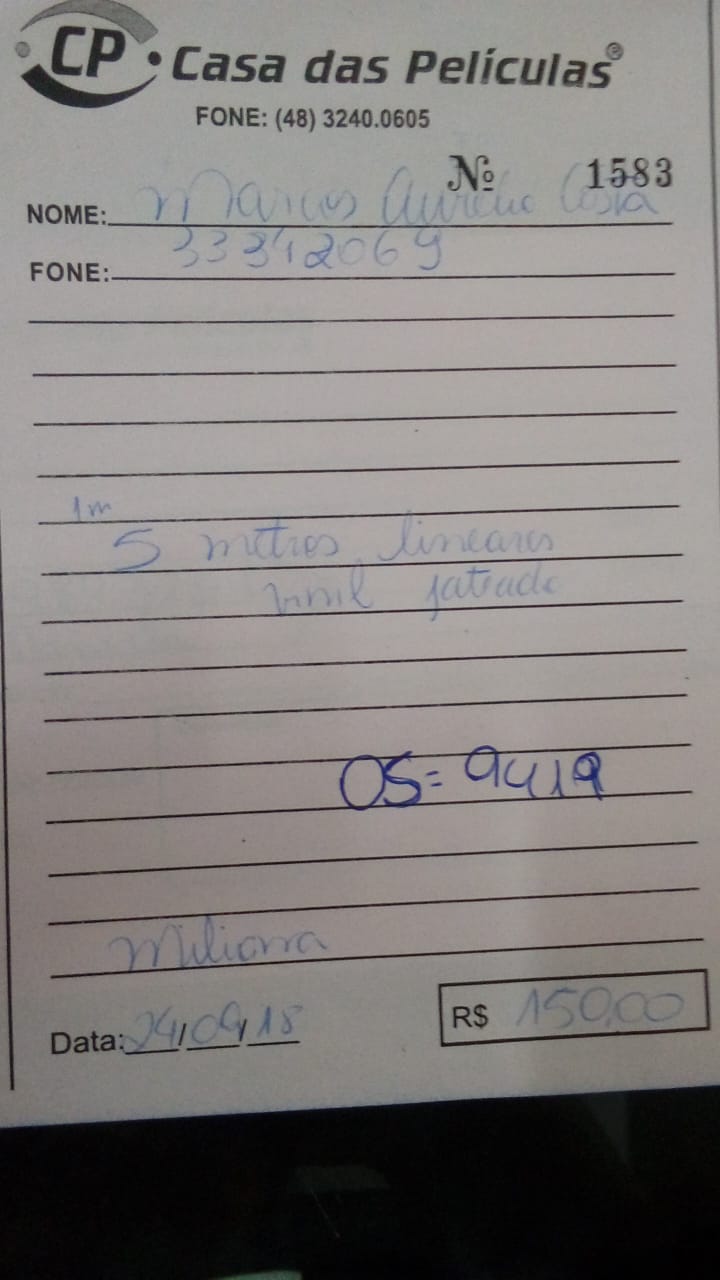 CP • Casa das Películas®
FONE: (48) 3240.0605
Nº 1583
NOME: Marcos Aurelio Costa
FONE: 33342069
1m
5 metros lineares
vinil jateado
OS= 9419
Data: 24/09/18
R$ 150,00